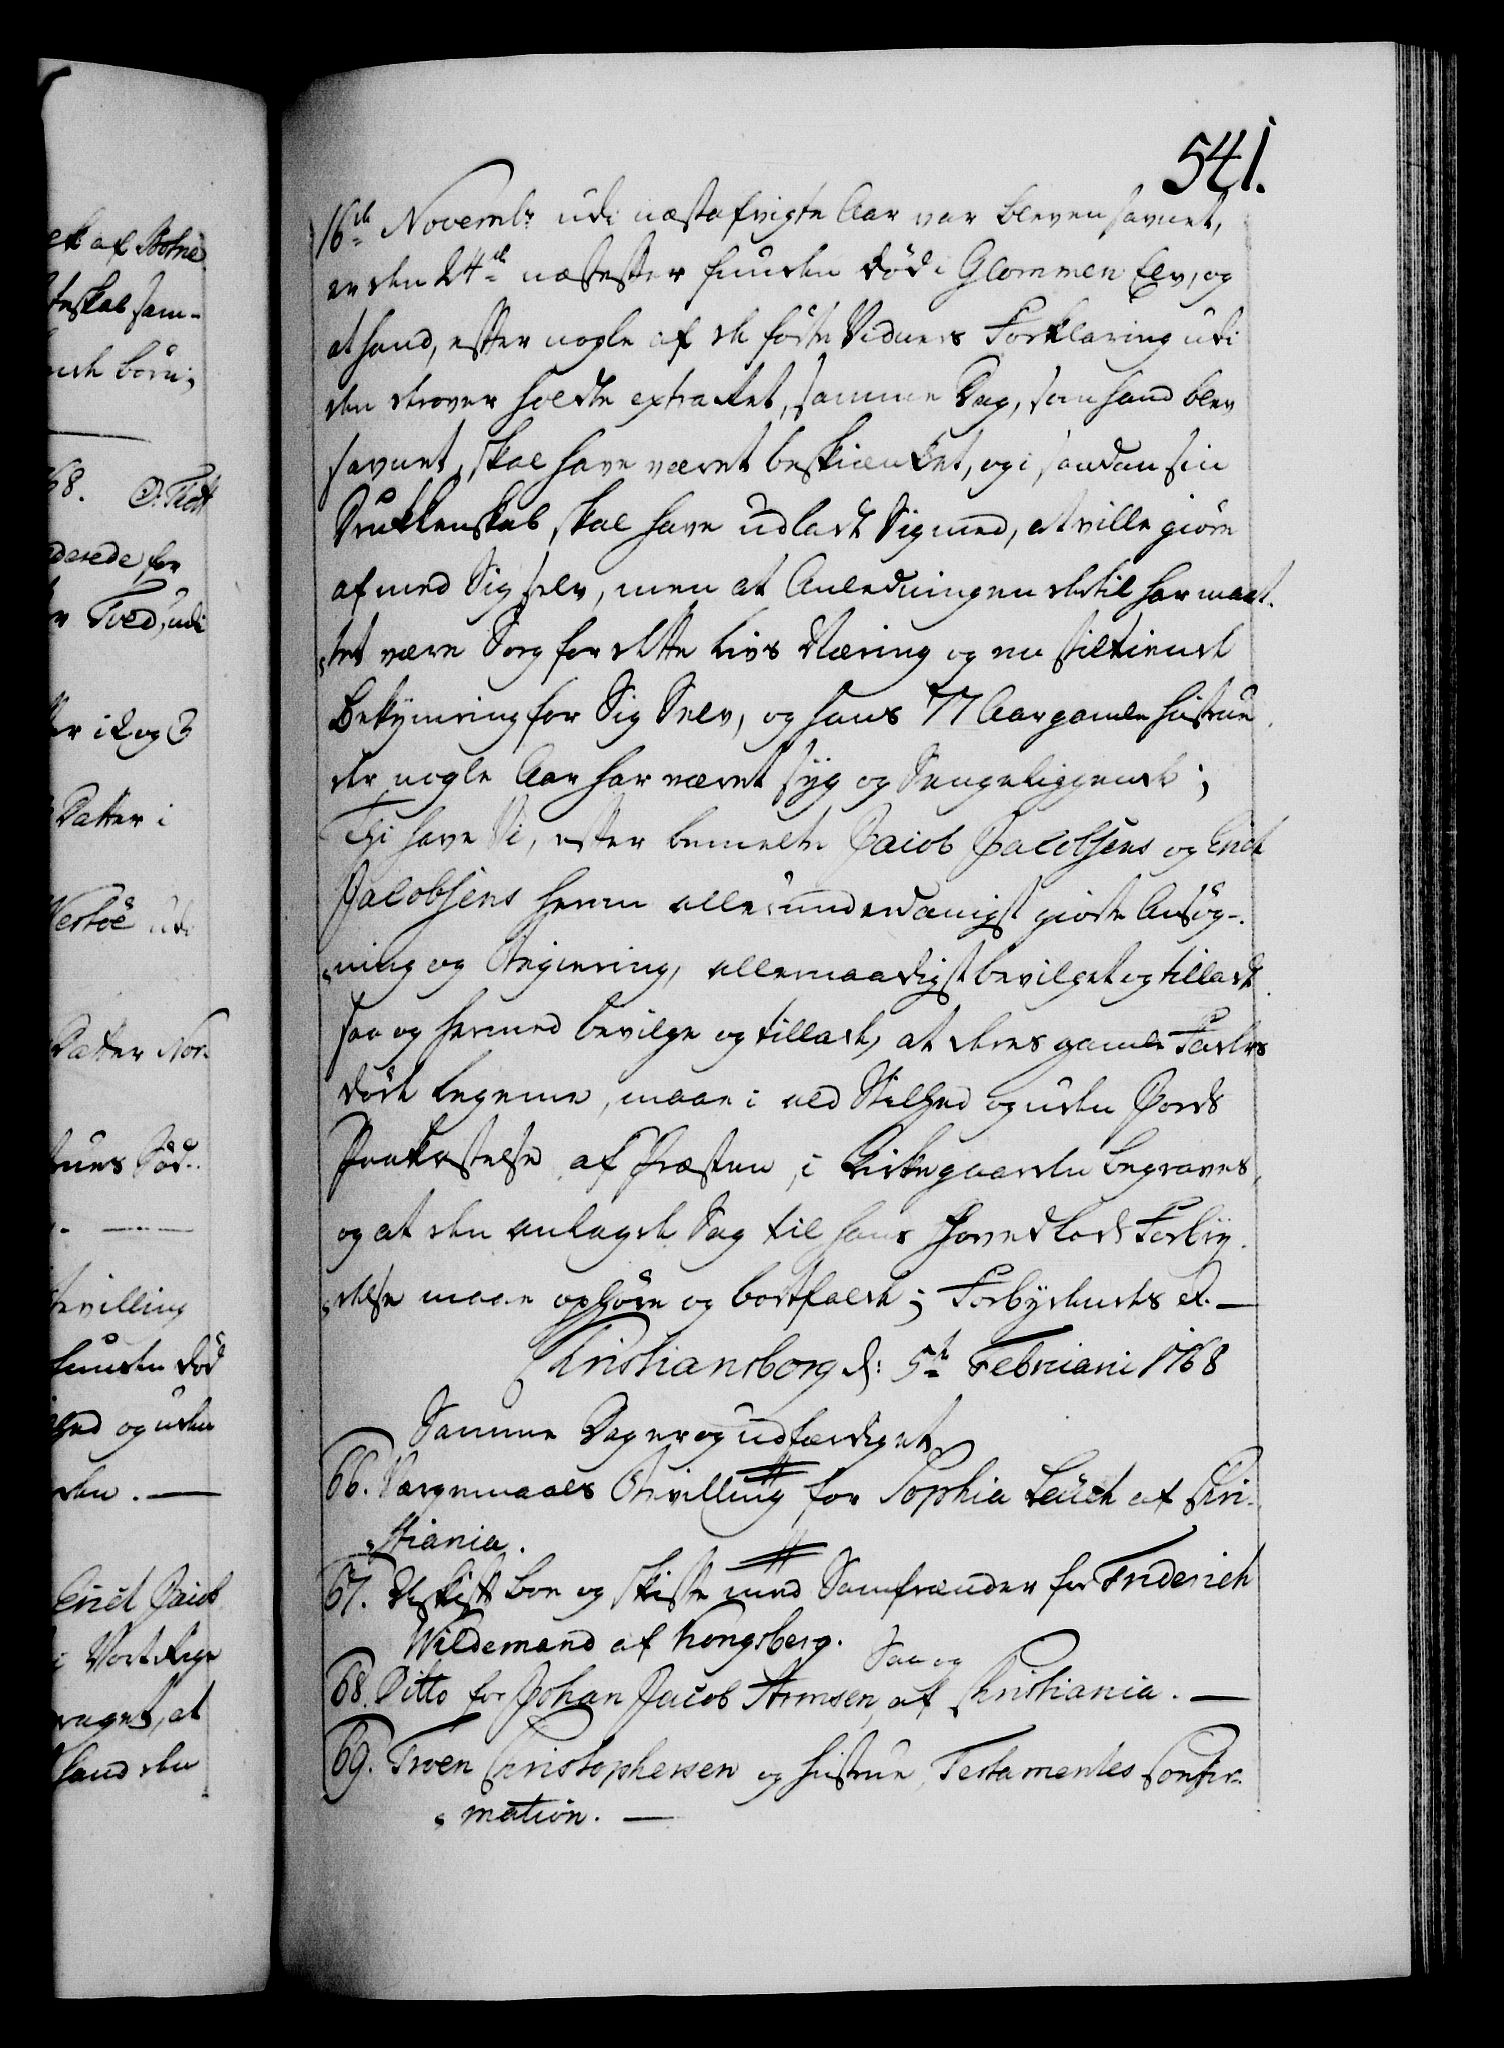 541.
16de Novembr udi næstafvigte Aar var bleven savnet,
er den 24de næstefter funden död i Glommen Elv, og
at hand, efter nogle af de förte Vidners Forklaring udi
den derover holdte extra Ret, samme Dag, som hand blev
savnet, skal have været beskienket, og i saadan sin
Drukkenskab skal have udladt Sig med, at ville giöre
af med Sig selv, men at Anledningen dertil har maat-
tet være Sorg for dette Livs Næring og en stiltiende
Bekymring for Sig Selv, og hans 77 Aar gamle Hustrue
der nogle Aar har været syg og Sengeliggende;
Thi have Vi, efter bemelte Jacob Jacobsens og Erich
Jacobsens herom allerunderdanigst giorte Ansög-
ning og Begiering, allernaadigst bevilget og tilladt
saa og hermed bevilge og tillade, at deres gamle Faders
döde Legeme, maae i all Stilhed og uden Jords
Paakastelse af Præsten, i Kirkegaarden begraves,
og at den anlagde Sag til hans Hovedlods Forbry-
delse maae ophöre og bortfalde; Forbydendes et. —
Christiansborg d: 5te Februarii 1768
Samme Dag er og udfærdiget
66. Værgemaals Bevilling for Sophia Leuch af Chri-
stiania.
67. Uskift Boe og skifte med Samfrænder for Friderich
Wildemand af Kongsberg.
Saa og
68. Ditto for Johan Jacob Armsen, af Christiania. —
69. Troen Christophersen og Hustrue Testamentes Confir-
mation. —
ek af Botne
skab sam-
nde börn;
68. O. Tott
derede, for
Tved, udi
er i 2 og 3
Datter i
Datter Nor-
evilling
funden död
hed og uden
den. —
Erich Jacob
i Vort Rige
raget, at
hand den